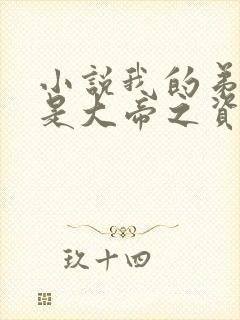 小說我的弟
是大帝之資
玖十四